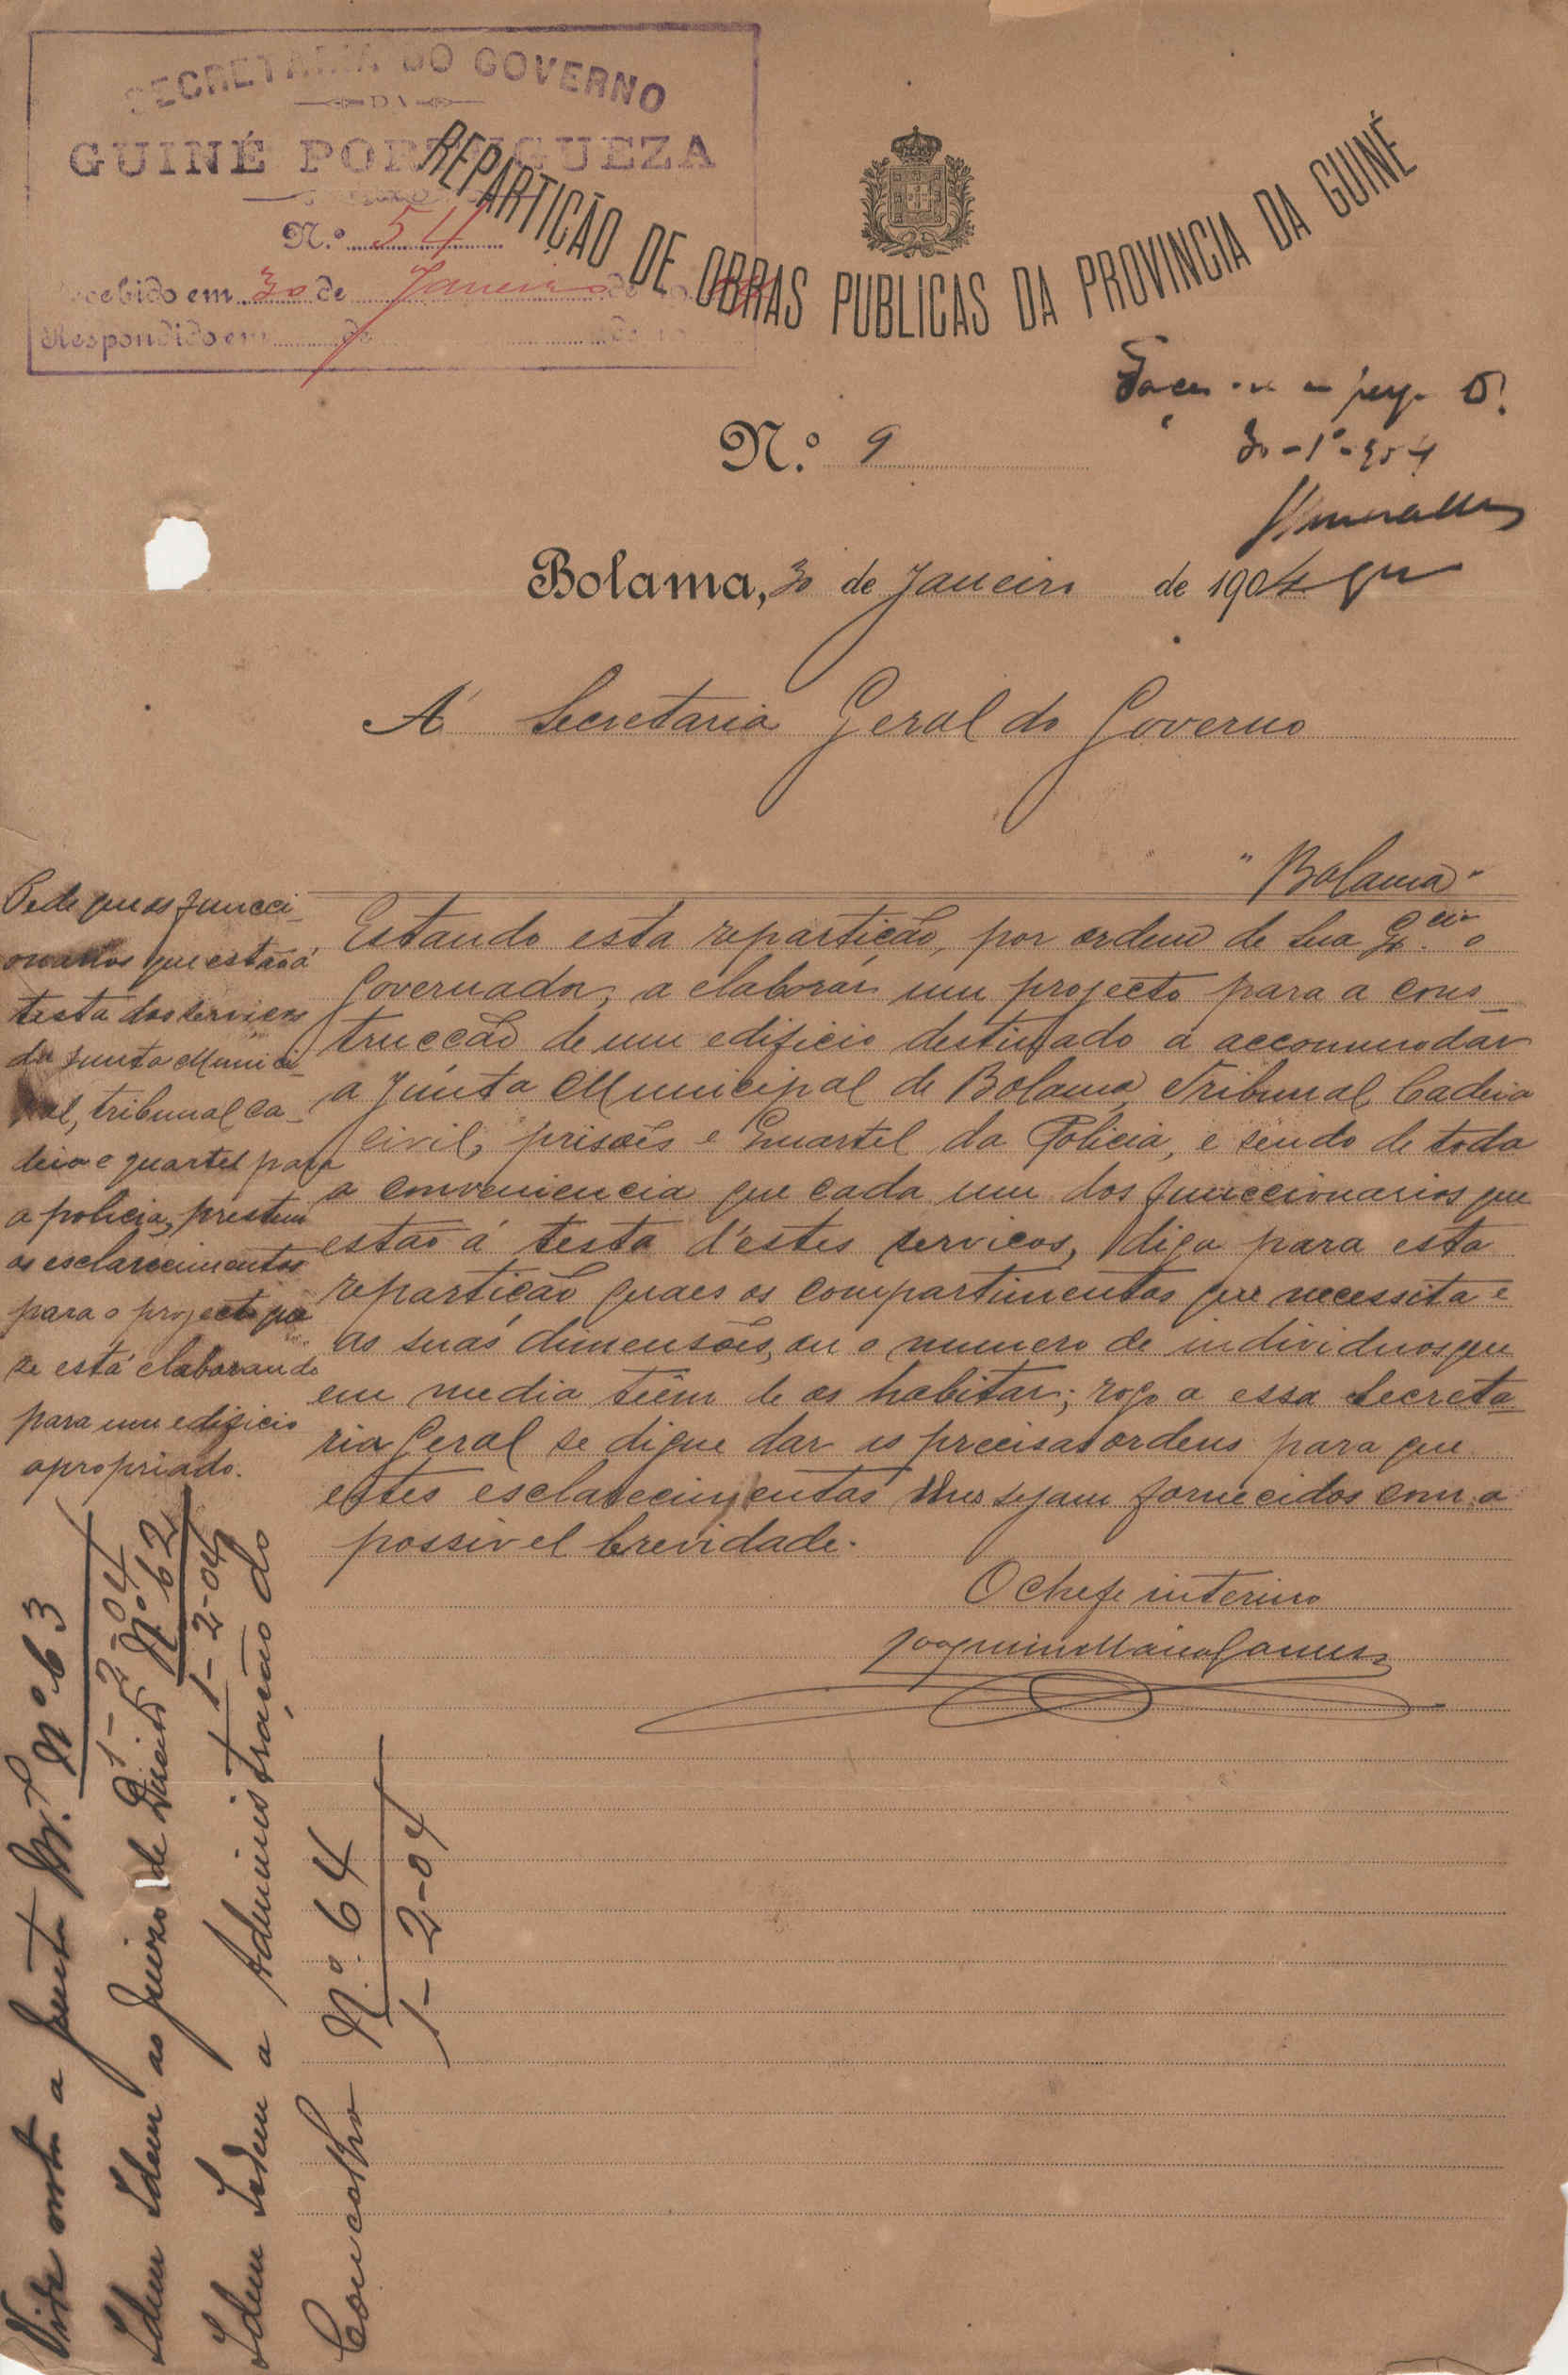 SECRETARIA DO GOVERNO
DA
GUINÉ PORTUGUEZA
N.º 54
Recebido em 30 de Janeiro de 1904
Respondido em de de 19
REPARTIÇÃO DE OBRAS PUBLICAS DA PROVINCIA DA GUINÉ
30-1º-904
N.º 9
Bolama, 30 de Janeiro de 1904
Á Secretaria Geral do Governo
"Bolama"
Pede que os funcci-
onarios que estão á
testa dos serviços
da Junta Munici-
pal, tribunal ca-
deia e quartel para
a policia, prestem
os esclarecimentos
para o projecto que
se está elaborando
para um edificio
apropriado.
Estando esta repartição, por ordem de Sua Ex.cia o
Governador, a elaborar um projecto para a cons-
trucção de um edificio destinado a accommodar
a Junta Municipal de Bolama, Tribunal, Cadeia
civil, prisões e Quartel da Policia, e sendo de toda
a conveniencia que cada um dos funccionarios que
estão á testa d'estes serviços, diga para esta
repartição quaes os compartimentos que necessita e
as suas dimensões, ou o numero de individuos que
em media têem de os habitar; rogo a essa Secreta-
ria Geral se digne dar as precisas ordens para que
estes esclarecimentos lhes sejam fornecidos com a
possivel brevidade.
O chefe interino
Joaquim Maria Gomes
Vide nota a Junta M.al Nº 63
1-2-04
Idem Idem ao Juizo de Direito Nº 62
1-2-04
Idem Idem a Administração do
Concelho Nº. 64
1-2-04